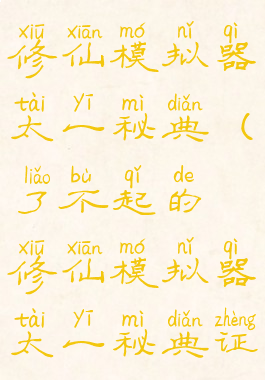 xiū xiān mó nǐ qì
修仙模拟器
tài yī mì diǎn
太一秘典（
liǎo bù qǐ de
了不起的
xiū xiān mó nǐ qì
修仙模拟器
tài yī mì diǎn zhèng
太一秘典证